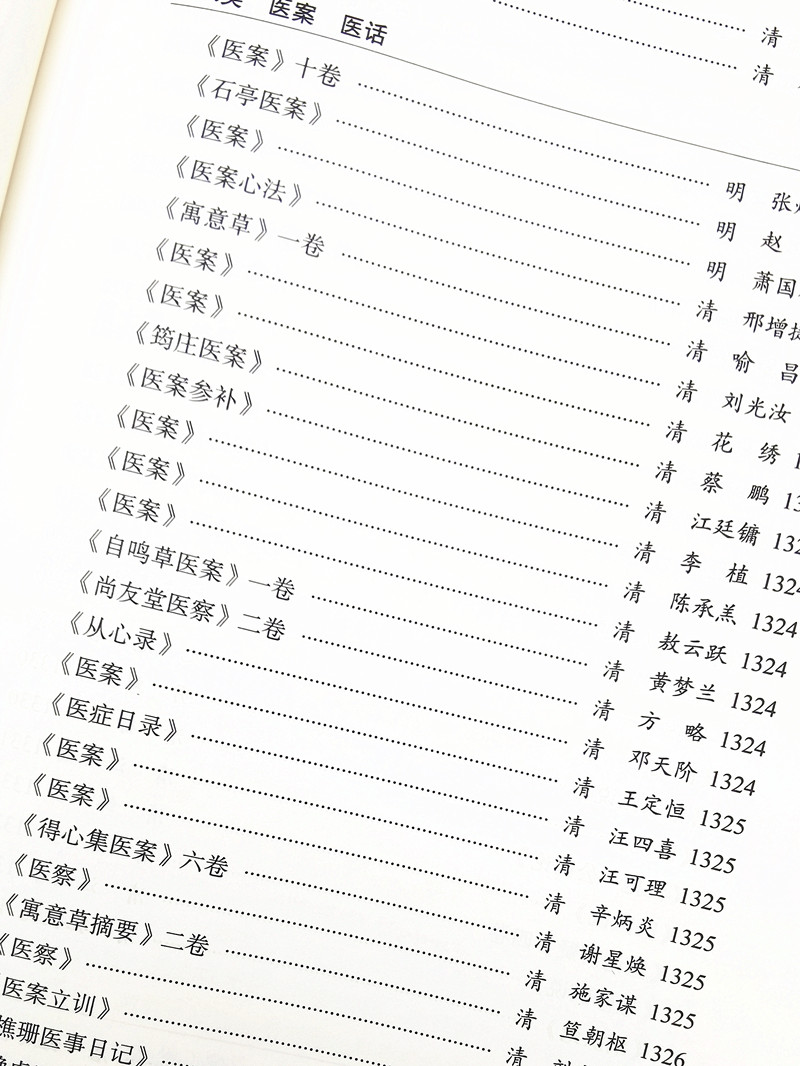 清
清
医案 医话
《医案》十卷 …… 明 张
《石亭医案》 …… 明 赵
《医案》 …… 明 萧国
《医案心法》 …… 清 邢增捷
《寓意草》一卷 …… 清 喻 昌
《医案》 …… 清 刘光汝
《医案》 …… 清 花 绣 1
《筠庄医案》 …… 清 蔡 鹏 13
《医案参补》 …… 清 江廷镛 132
《医案》 …… 清 李 植 1324
《医案》 …… 清 陈承羔 1324
《医案》 …… 清 敖云跃 1324
《自鸣草医案》一卷 …… 清 黄梦兰 1324
《尚友堂医察》二卷 …… 清 方 略 1324
《从心录》 …… 清 邓天阶 1324
《医案》 …… 清 王定恒 1325
《医症日录》 …… 清 汪四喜 1325
《医案》 …… 清 汪可理 1325
《医案》 …… 清 辛炳炎 1325
《得心集医案》六卷 …… 清 谢星焕 1325
《医察》 …… 清 施家谋 1325
《寓意草摘要》二卷 …… 清 笪朝枢 1326
《医察》 …… 清
医案立训》
樵珊医事日记》